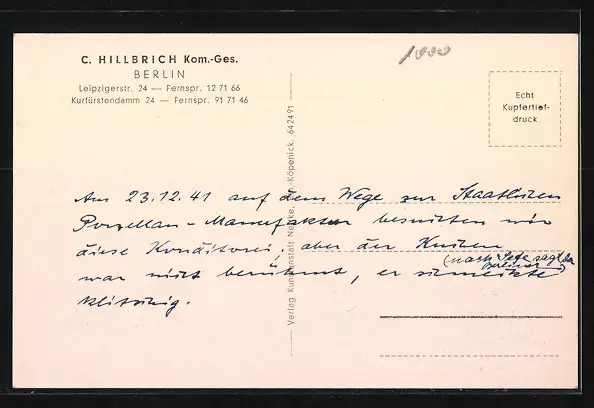 1000
C. HILLBRICH Kom.-Ges.
BERLIN
Leipzigerstr. 24 — Fernspr. 12 71 66
Kurfürstendamm 24 — Fernspr. 91 71 46
Echt
Kupfertief-
druck
Verlag Kunstanstalt Nepke, Bln.-Köpenick. 642491
Am 23.12.41 auf dem Wege zur Staatlichen
Porzellan-Manufaktur besuchten wir
diese Konditorei, aber der Kuchen
war nicht berühmt, er schmeckte
(nach sagt der Berliner)
klitschig.